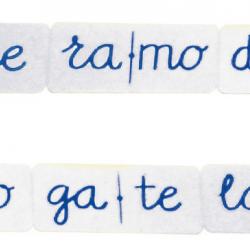 e ra mo d
o ga te lo